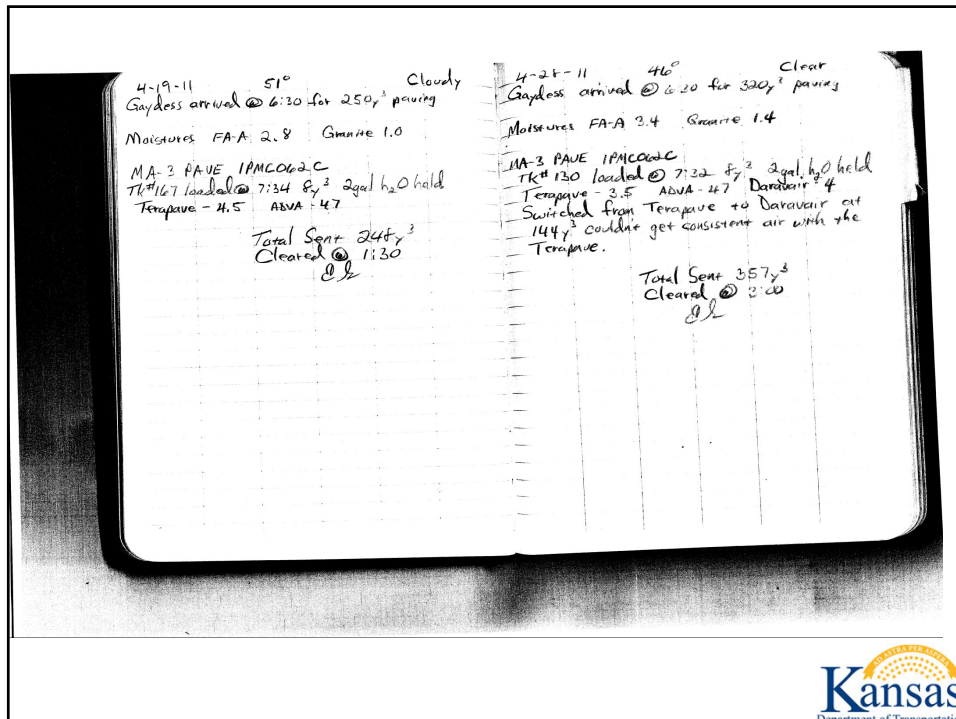 4-19-11 51° Cloudy
Gaydess arrived @ 6:30 for 250y³ paving
Moistures FA-A 2.8 Granite 1.0
MA-3 PAVE 1PMC062C
Tk# 167 loaded @ 7:34 8y³ 2gal h₂O held
Terapave - 4.5 ADVA - 47
Total Sent 248y³
Cleared @ 1:30
4-28-11 46° Clear
Gaydess arrived @ 6:30 for 320y³ paving
Moistures FA-A 3.4 Granite 1.4
MA-3 PAVE 1PMC062C
Tk# 130 loaded @ 7:32 8y³ 2gal h₂O held
Terapave - 3.5 ADVA - 47 Daravair - 4
Switched from Terapave to Daravair at
144y³ couldnt get consistent air with the
Terapave.
Total Sent 357y³
Cleared @ 3:00
AD ASTRA PER ASPERA
Kansas
Department of Transportation